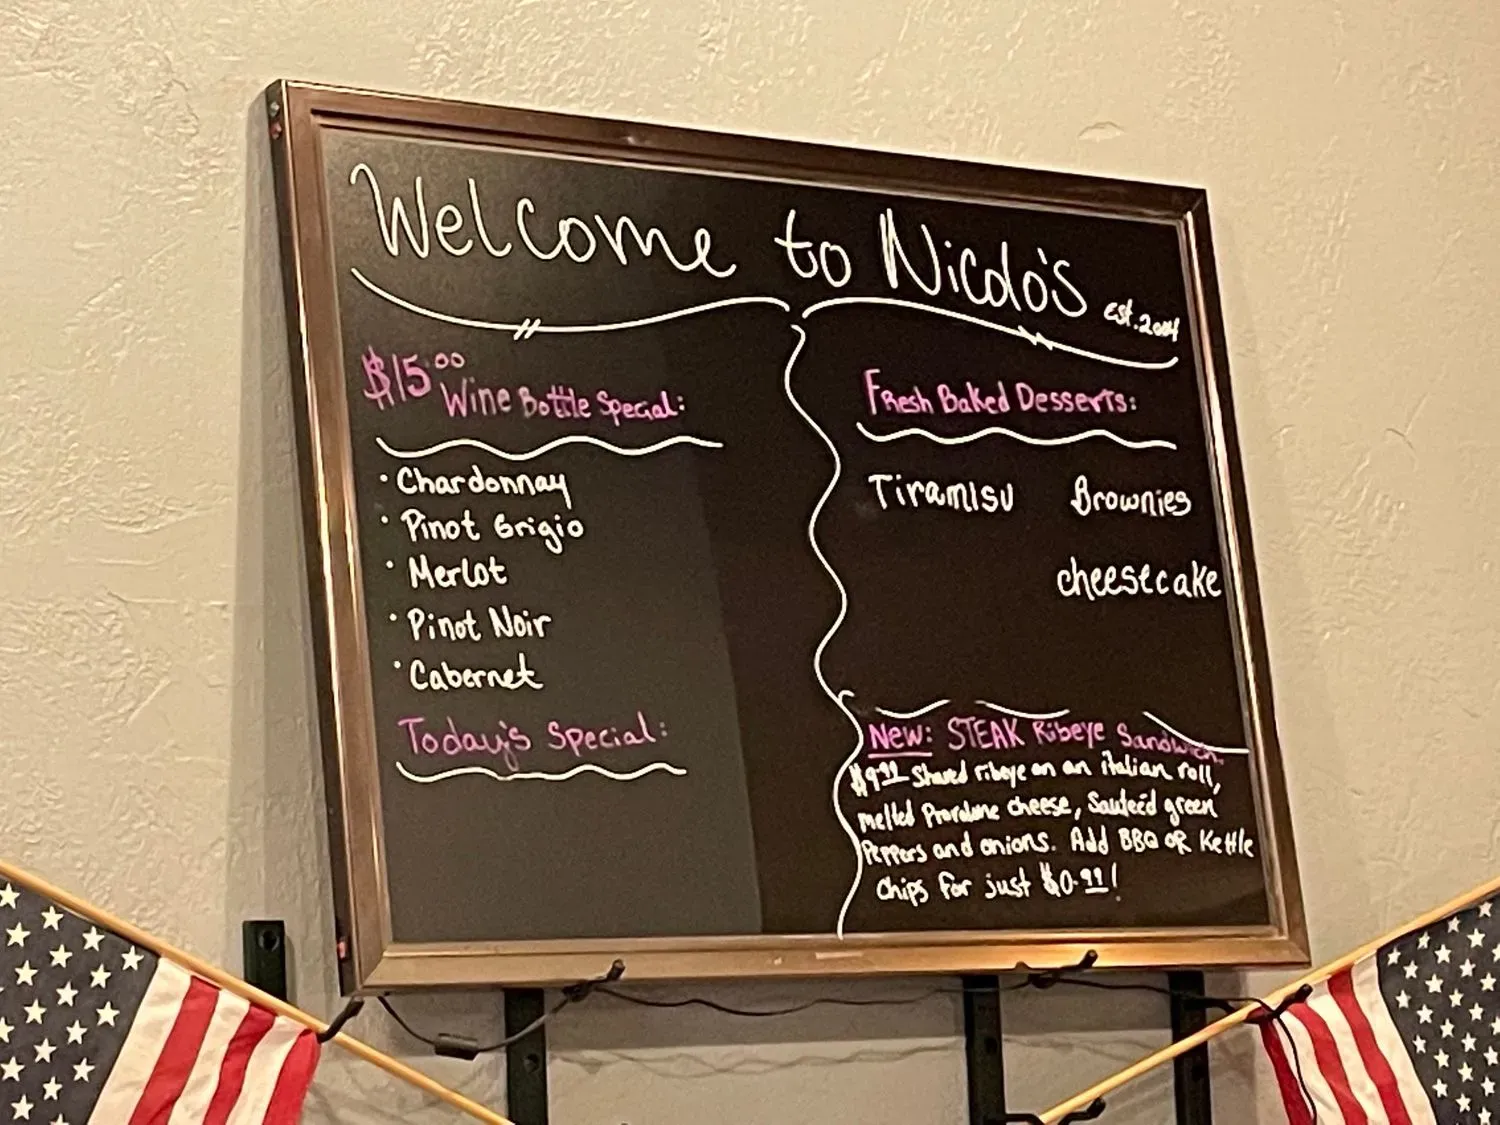 Welcome to Nicolo's est. 2004
$15.00 Wine Bottle Special:
· Chardonnay
· Pinot Grigio
· Merlot
· Pinot Noir
· Cabernet
Today's Special:
Fresh Baked Desserts:
Tiramisu Brownies
cheesecake
New: STEAK Ribeye Sandwich
$9.99 Shaved ribeye on an italian roll,
melted Provolone cheese, Sauteéd green
Peppers and onions. Add BBQ OR Kettle
Chips for just $0.99!